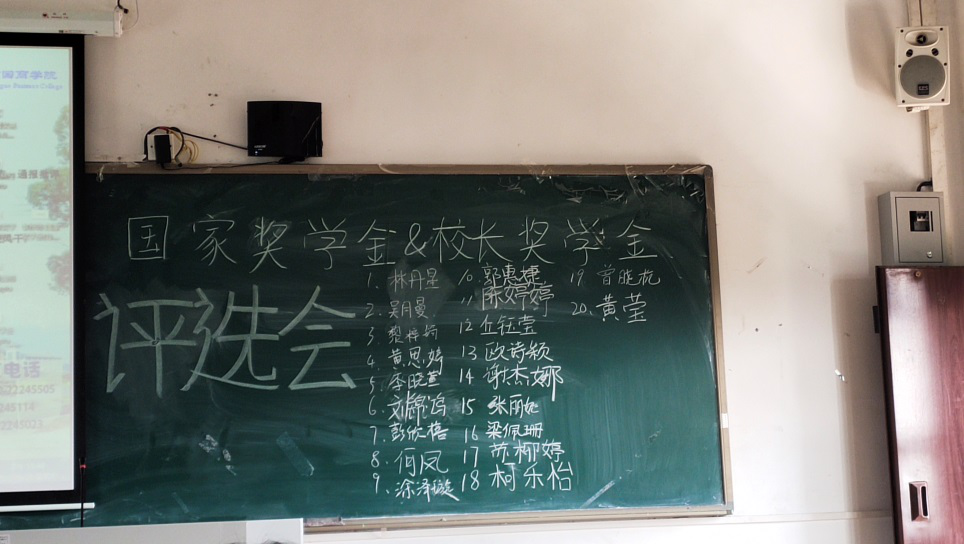 国商学院
通报批评
电话
23245505
245114
245023
国家奖学金&校长奖学金
评选会
1. 林丹星
2. 吴月曼
3. 黎梓莉
4. 黄思婷
5. 李晓莹
6. 刘锦鸿
7. 彭欣蓓
8. 何凤
9. 涂泽璇
10. 郭惠婕
11 陈婷婷
12 丘钰莹
13 欧诗颖
14 谢杰娜
15 张丽妮
16 梁佩珊
17 苏柳婷
18 柯乐怡
19 曾晓花
20. 黄莹